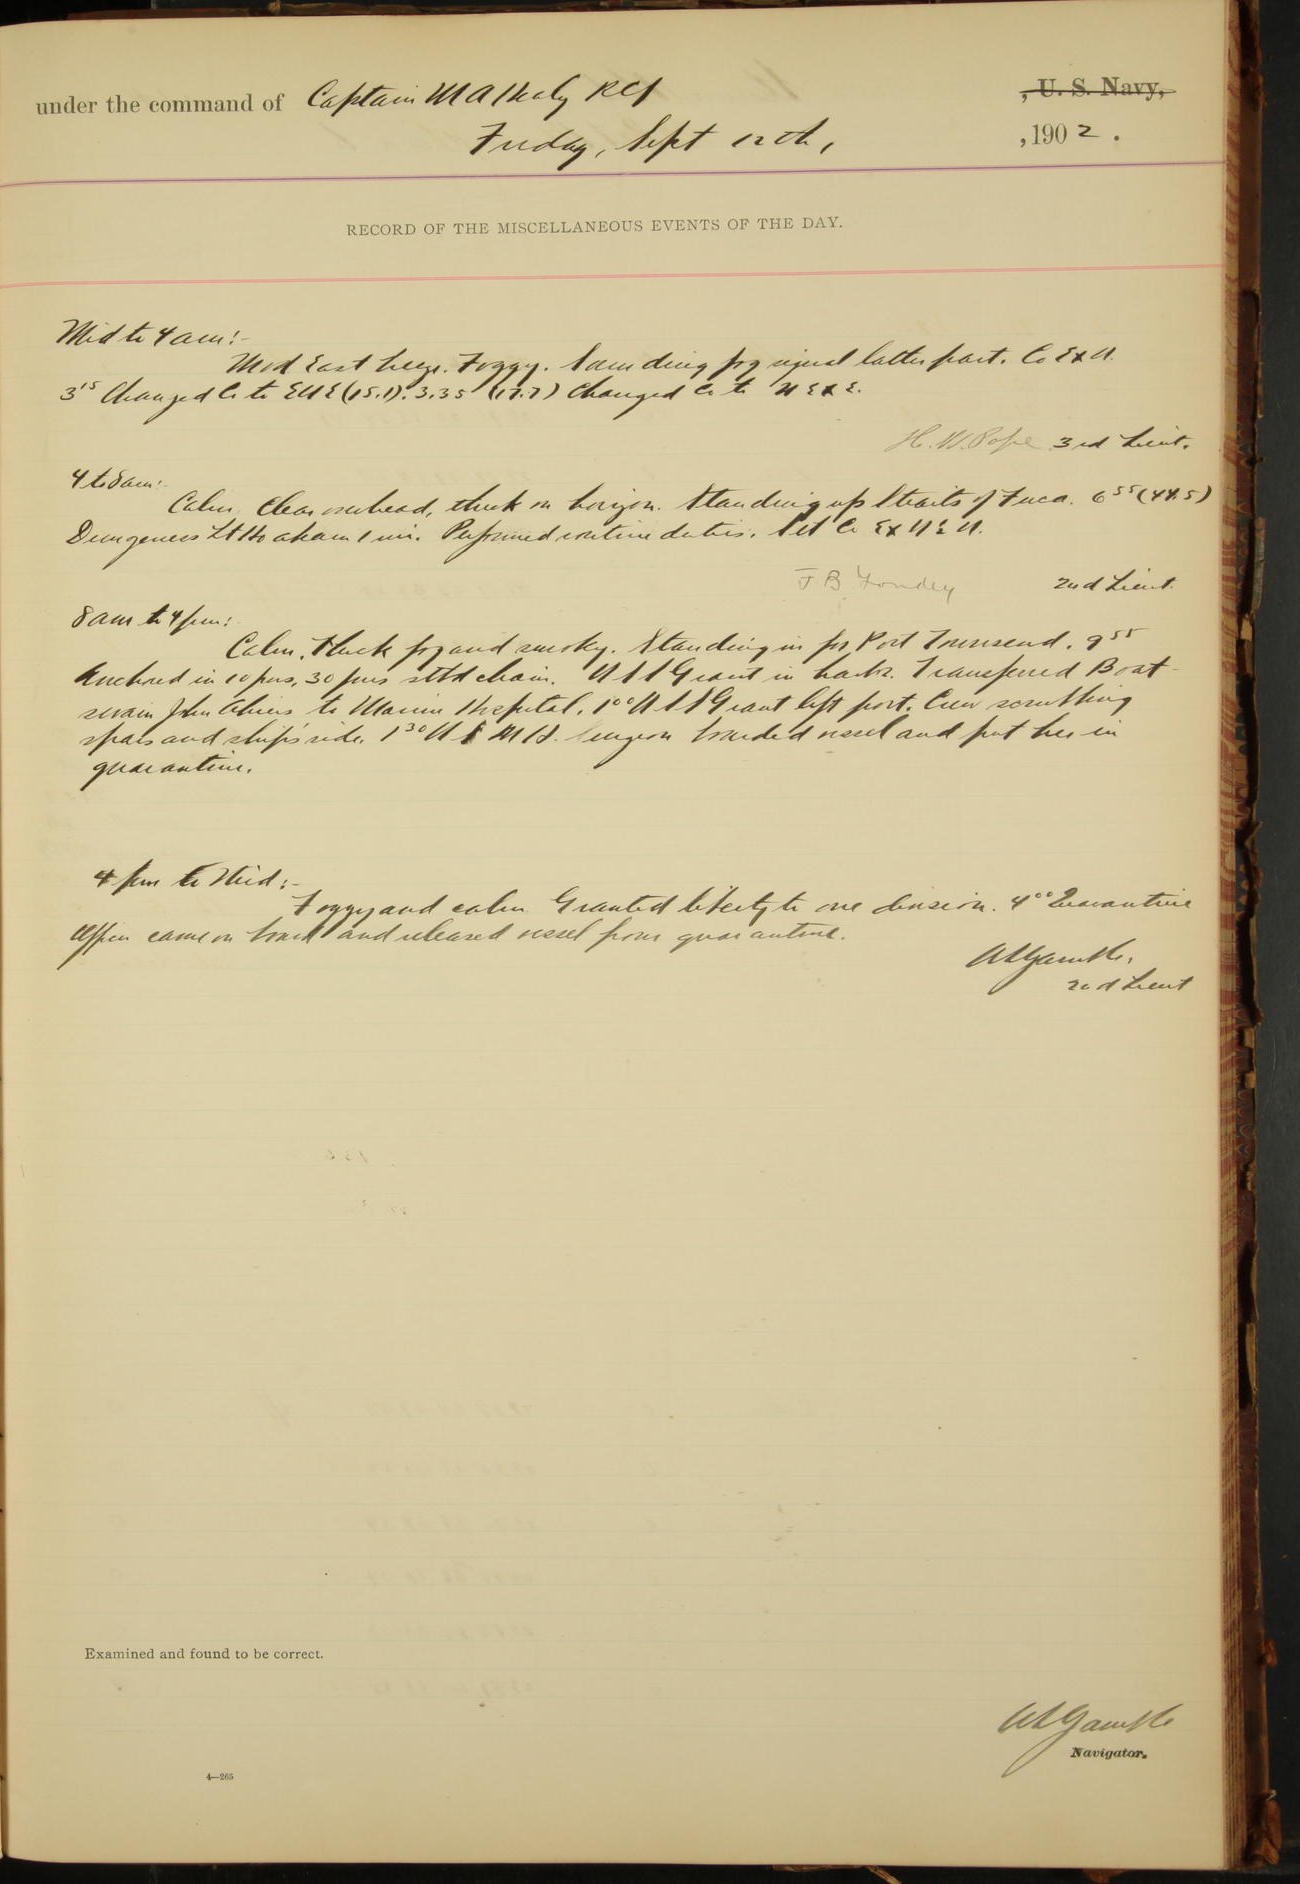 under the command of Captain M A Healy RCS , U. S. Navy,
Friday, Sept 12th, , 1902.
RECORD OF THE MISCELLANEOUS EVENTS OF THE DAY.
Mid to 4 am:-
Mod East breeze. Foggy. Sounding fog signal latter part. Co ExN.
3 15 Changed Co to ENE (15.1). 3.35 (17.7) Changed Co to NExE.
H. W. Pope 3rd Lieut.
4 to 8 am:
Calm. Clear overhead, thick on horizon. Standing up Straits of Fuca. 6 55 (44.5)
Dungeness Lt Ho abeam 1 mi. Performed routine duties. Set Co ExN½N.
J B 2nd Lieut.
8 am to 4 pm:
Calm. Thick fog and smoky. Standing in for Port Townsend. 9 55
Anchored in 10 fms, 30 fms stbd chain. USS Grant in harbor. Transferred Boat-
swain John to Marine Hospital. 1 00 USS Grant left port. Crew scrubbing
spars and ship's side. 1 30 U S M H. Surgeon boarded vessel and put her in
quarantine.
4 pm to Mid:-
Foggy and calm Granted liberty to one division. 4 00 Quarantine
Officer came on board and released vessel from quarantine.
Gamble.
2nd Lieut
Examined and found to be correct.
Gamble
Navigator.
4—265